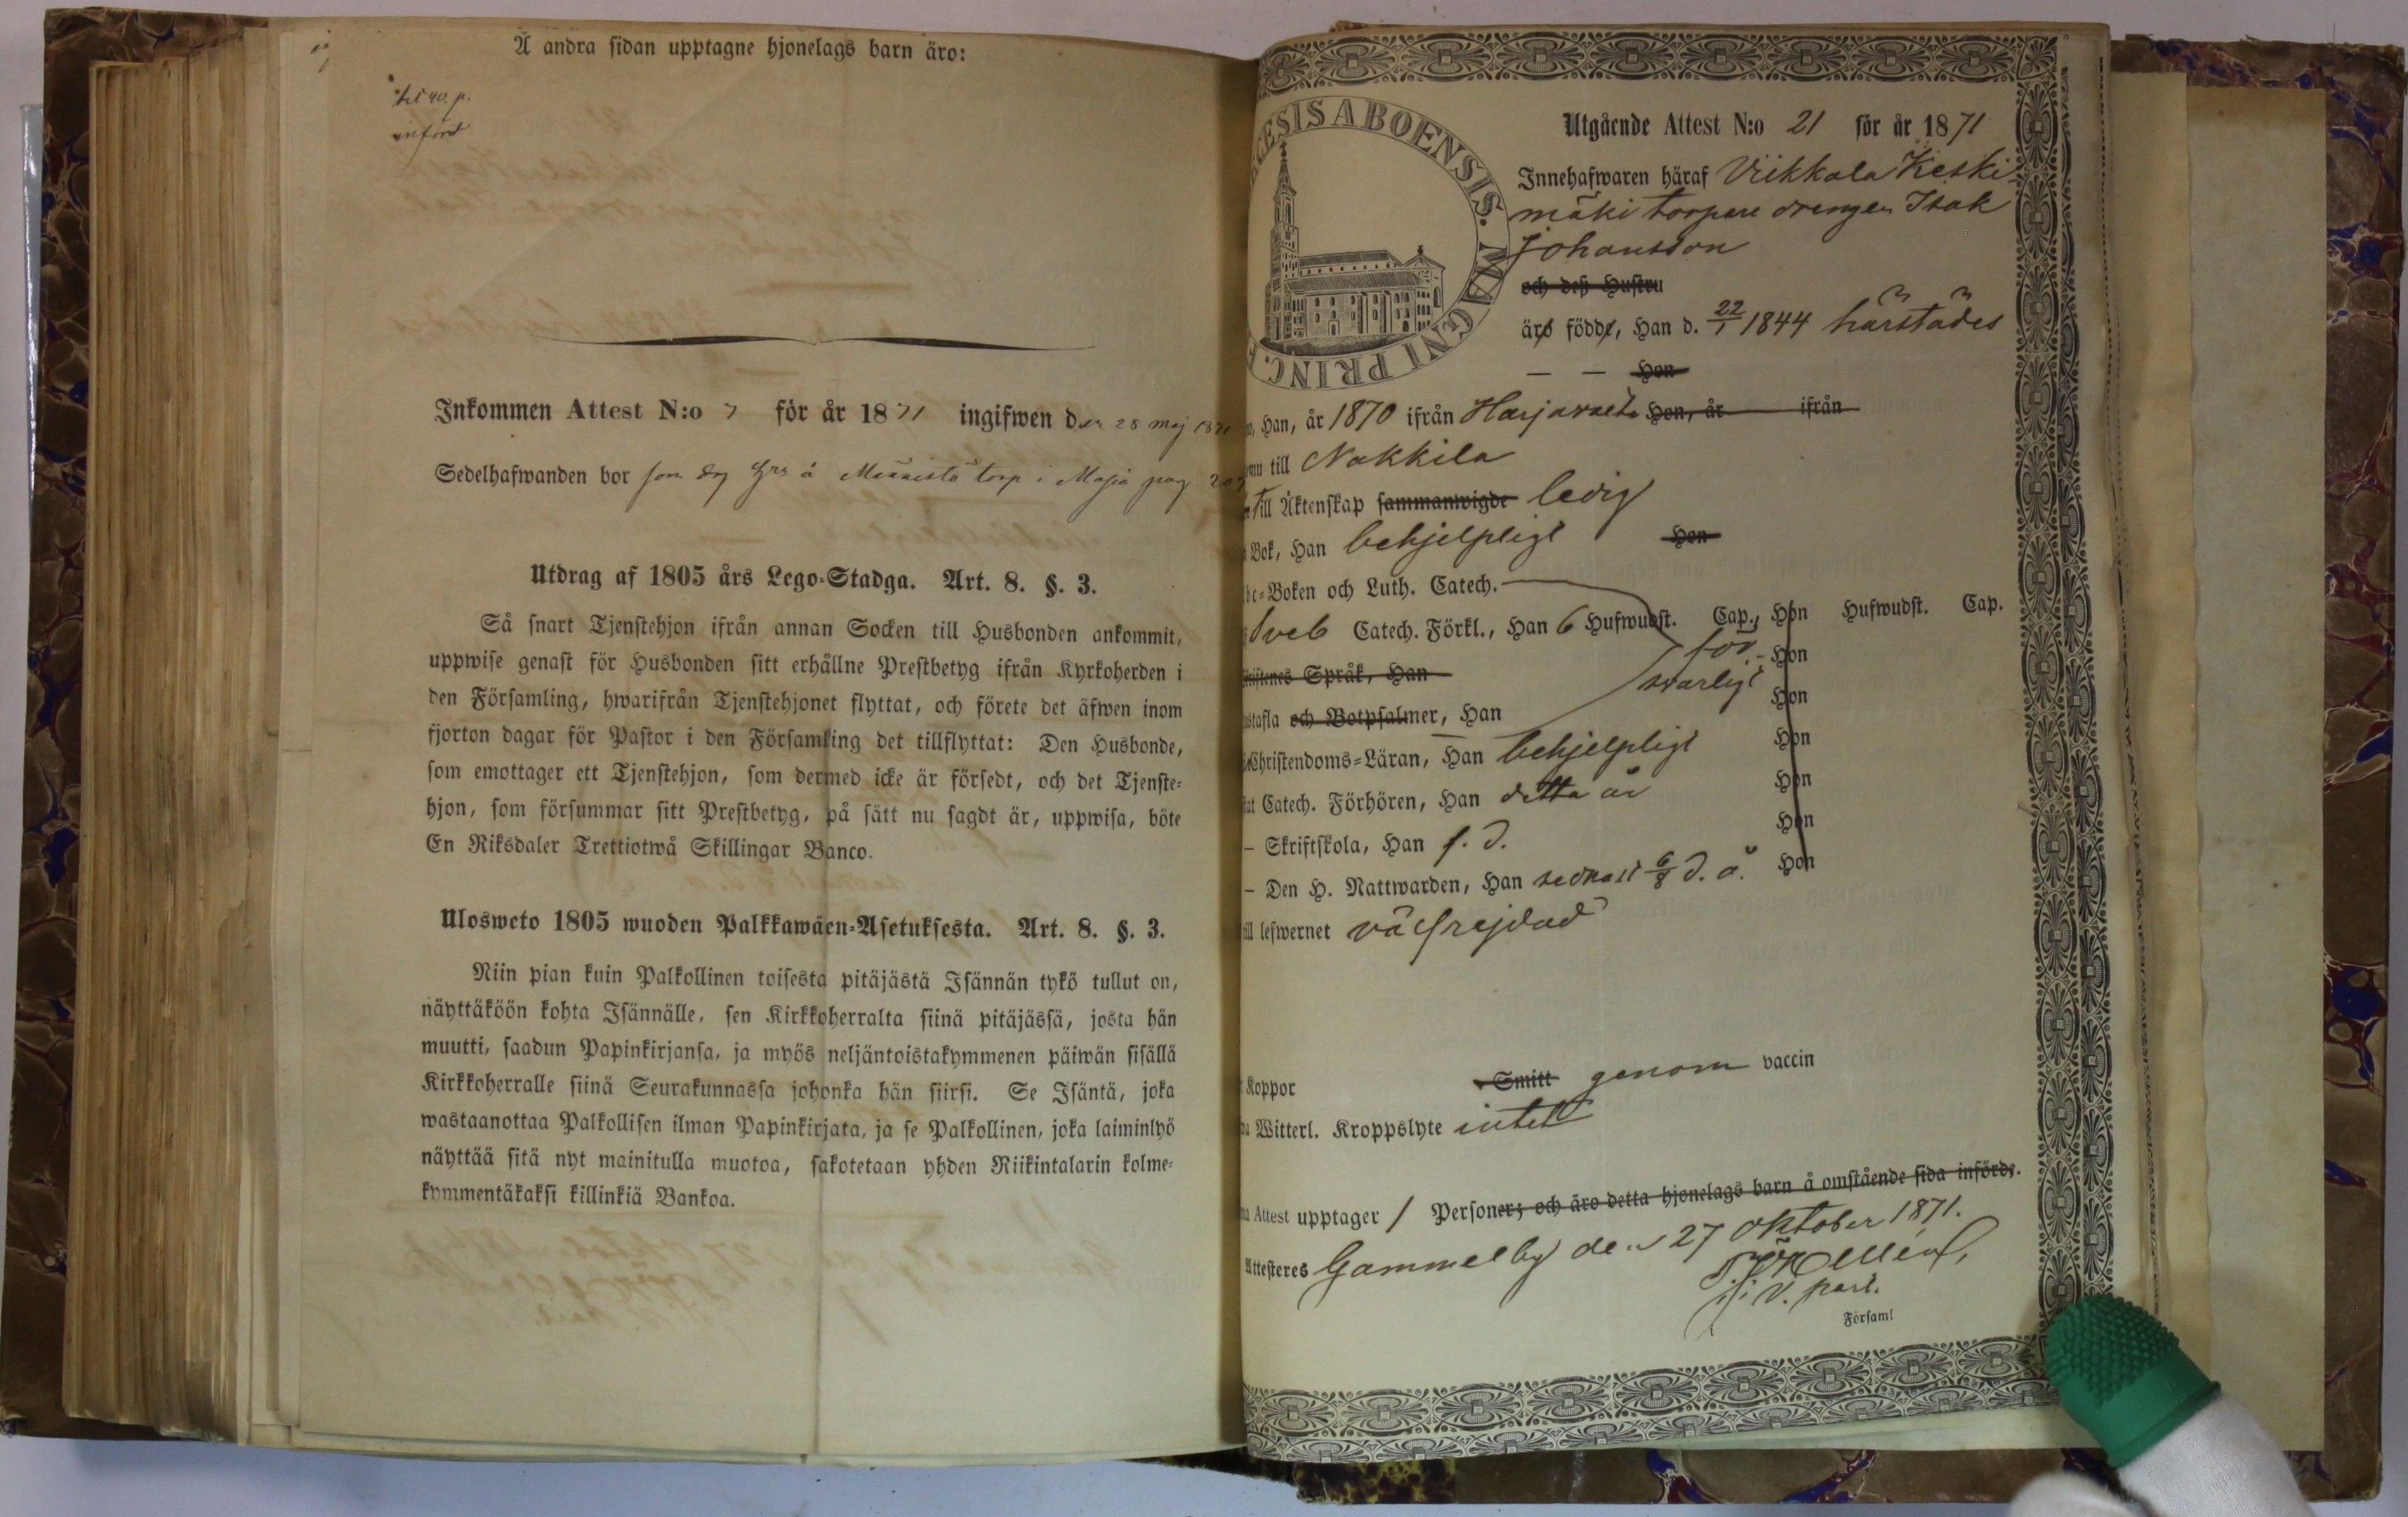 Å andra sidan upptagne hjonelags barn äro:
införd
Inkommen Attest N:o 7 för år 1871 ingifwen den 28 maj 1871
Sedelhafwanden bor son drg hos å Männistö torp i Masia pag
Utdrag af 1805 års Lego-Stadga. Art. 8. §. 3.
Så snart Tjenstehjon ifrån annan Socken till Husbonden ankommit,
uppwise genast för Husbonden sitt erhållne Prestbetyg ifrån Kyrkoherden i
den Församling, hwarifrån Tjenstehjonet flyttat, och förete det äfwen inom
fjorton dagar för Pastor i den Församling det tillflyttat: Den Husbonde,
som emottager ett Tjenstehjon, som dermed icke är försedt, och det Tjenste-
hjon, som försummar sitt Prestbetyg, på sätt nu sagdt är, uppwisa, böte
En Riksdaler Trettiotwå Skillingar Banco.
Ulosweto 1805 wuoden Palkkawäen-Asetuksesta. Art. 8. §. 3.
Niin pian kuin Palkollinen toisesta pitäjästä Isännän tykö tullut on,
näyttäköön kohta Isännälle, sen Kirkkoherralta siinä pitäjässä, josta hän
muutti, saadun Papinkirjansa, ja myös neljäntoistakymmenen päiwän sisällä
Kirkkoherralle siinä Seurakunnassa johonka hän siirsi. Se Isäntä, joka
wastaanottaa Palkollisen ilman Papinkirjata, ja se Palkollinen, joka laiminlyö
näyttää sitä nyt mainitulla muotoa, sakotetaan yhden Riikintalarin kolme-
kymmentäkaksi killinkiä Bankoa.
ECESIS ABOENSIS. MAGNI PRINC.
Utgående Attest N:o 21 för år 1871
Innehafwaren häraf Viikkala Keski
mäki torpare drengen Isak
Johansson
och deß Hustru
äro födde, Han d. 22/1 1844 härstädes
— — Hon
Han, år 1870 ifrån Harjavalta Hon, år ifrån
till Nakkila
Till Äktenskap sammanwigde ledig
Bok, Han behjelpligt Hon
-Boken och Luth. Catech.
Sveb Catech. Förkl., Han 6 Hufwudst. Cap., Hon Hufwudst. Cap.
Språk, Han för- Hon
svarligt
tafla och Botpsalmer, Han Hon
Christendoms-Läran, Han behjelpligt Hon
Catech. Förhören, Han detta år Hon
– Skriftskola, Han f. d. Hon
– Den H. Nattwarden, Han sednast 6/8 d. å. Hon
till lefwernet välfrejdad
Koppor Smitt genom vaccin
Witterl. Kroppslyte intet
Attest upptager 1 Personer; och äro detta hjonelags barn å omstående sida införde.
Attesteres Gammelby den 27 oktober 1871.
v. past.
Församl